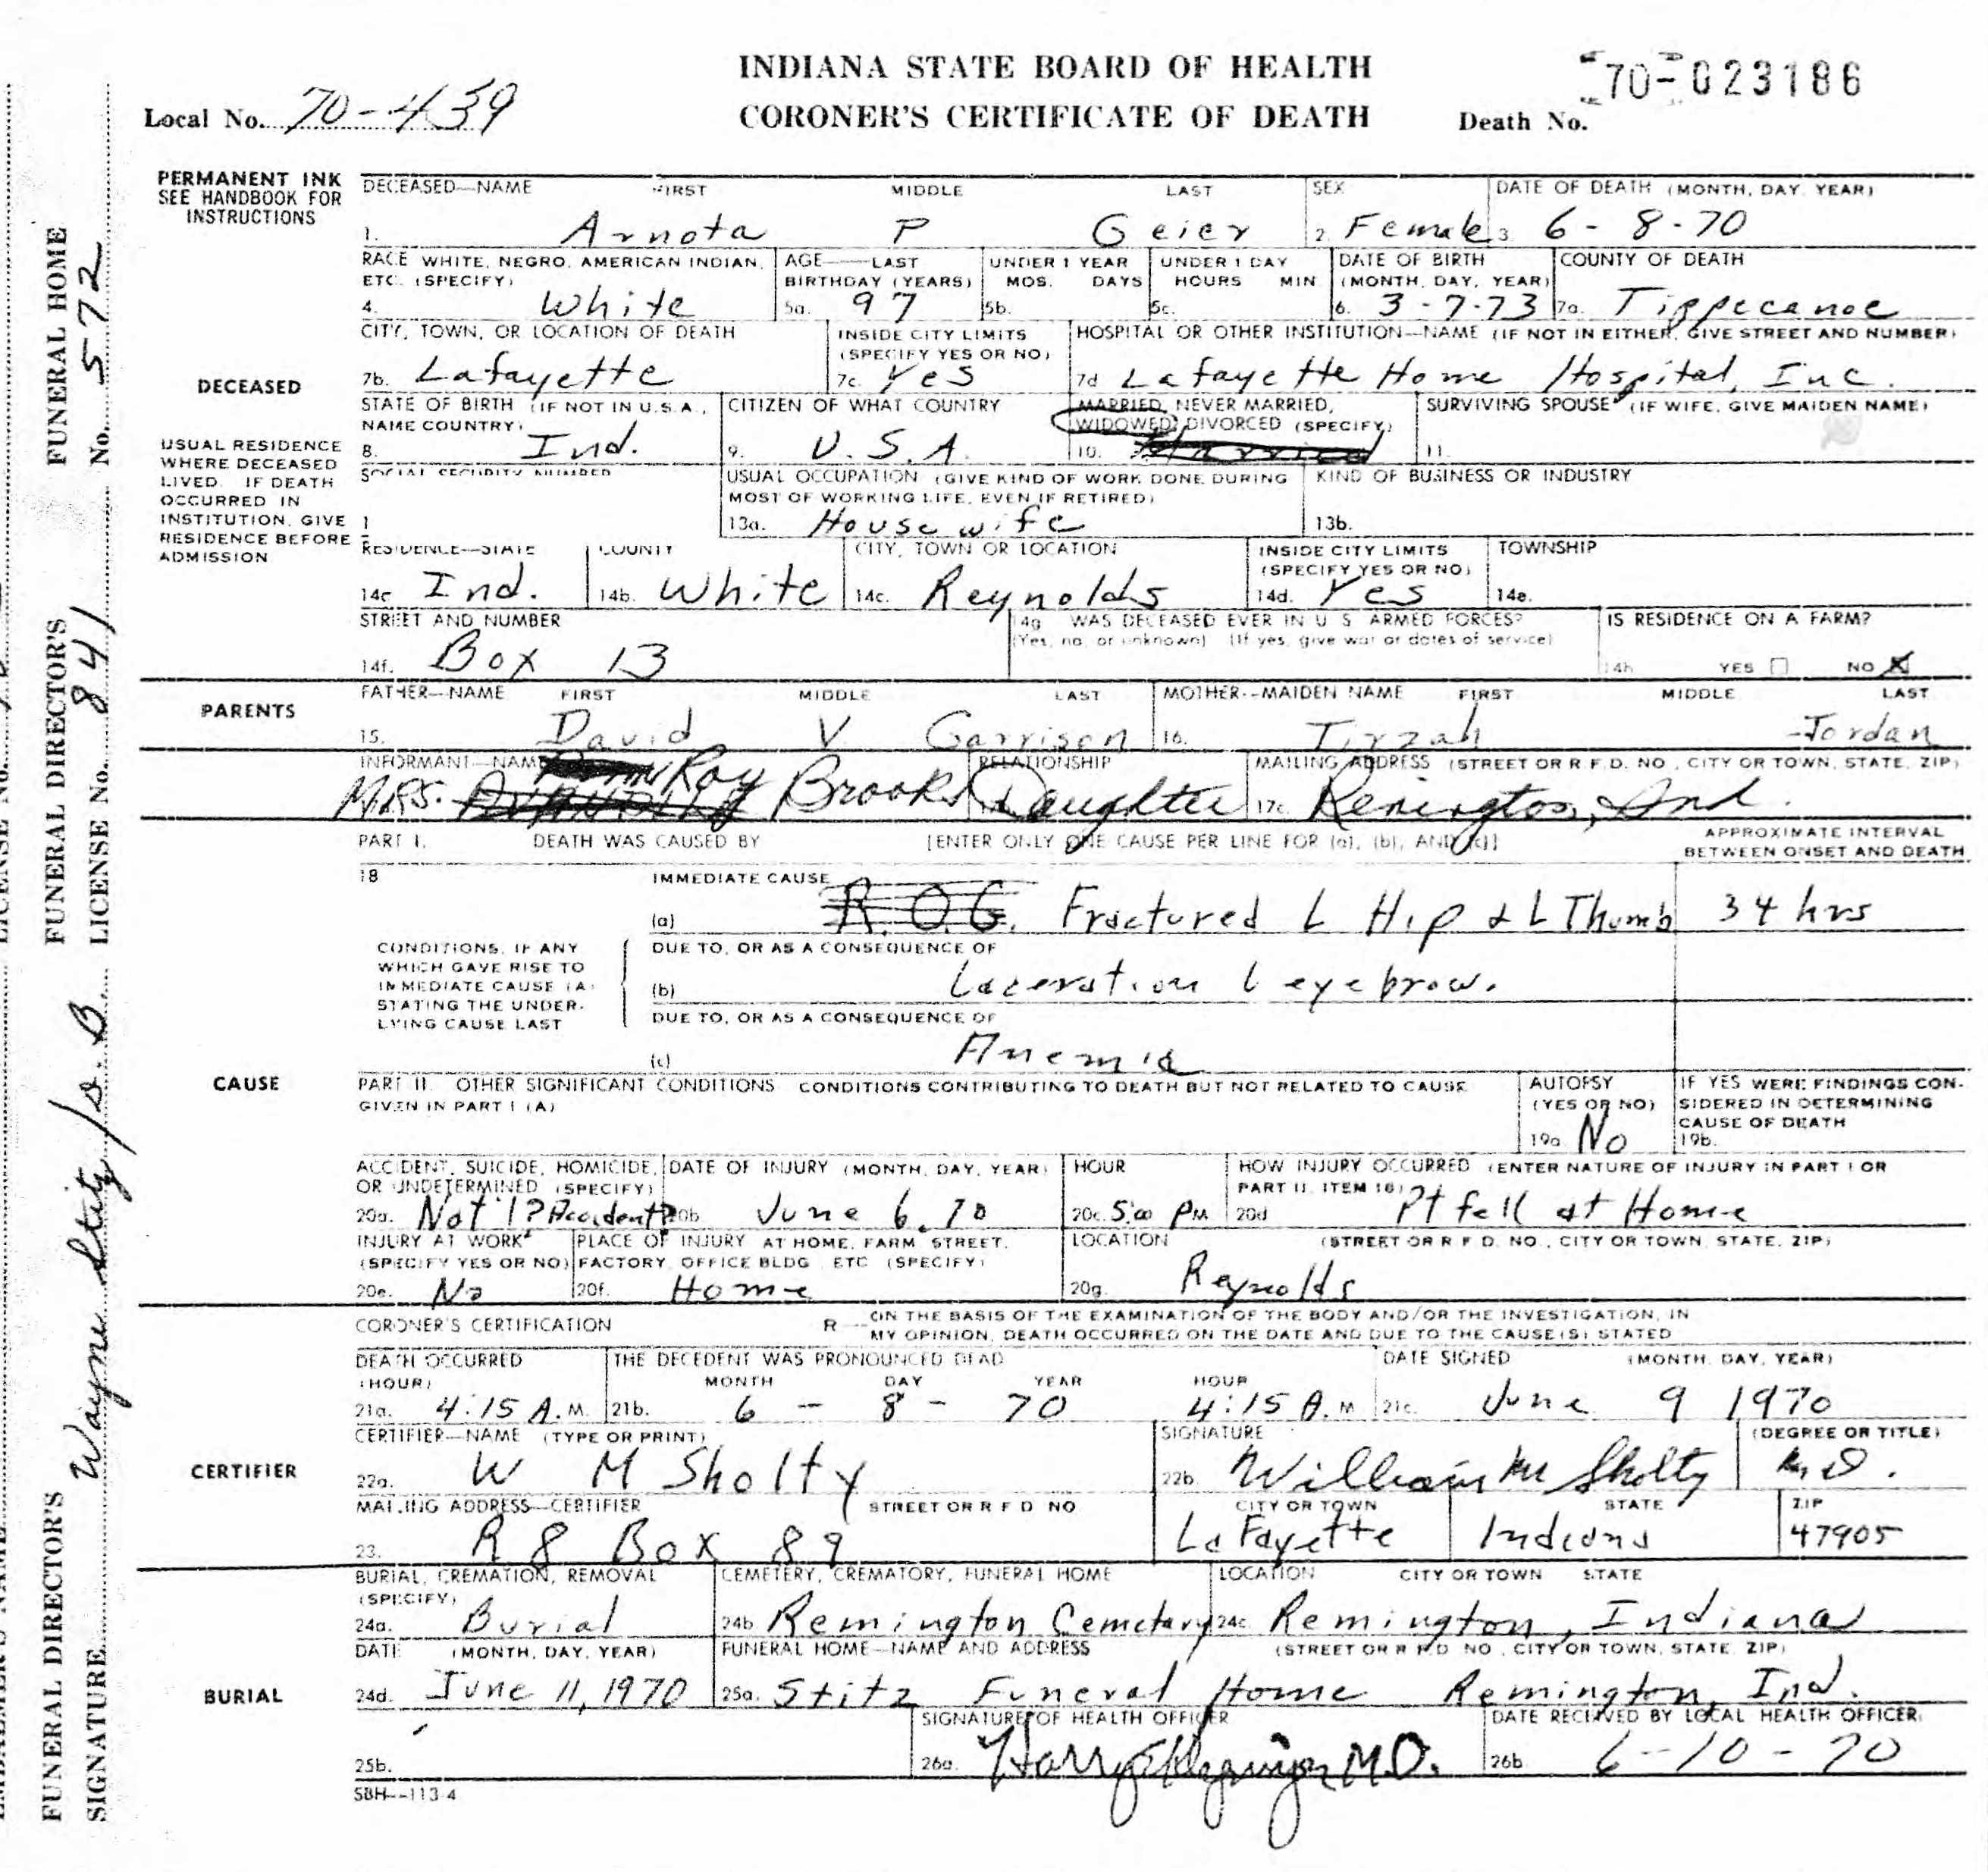 INDIANA STATE BOARD OF HEALTH
CORONER'S CERTIFICATE OF DEATH
Local No. 70-439
Death No. 70-023186
PERMANENT INK
SEE HANDBOOK FOR
INSTRUCTIONS
DECEASED—NAME FIRST MIDDLE LAST SEX DATE OF DEATH (MONTH, DAY, YEAR)
1. Arnota P Geier 2. Female 3. 6-8-70
RACE WHITE, NEGRO, AMERICAN INDIAN, AGE—LAST UNDER 1 YEAR UNDER 1 DAY DATE OF BIRTH COUNTY OF DEATH
ETC. (SPECIFY) BIRTHDAY (YEARS) MOS. DAYS HOURS MIN (MONTH, DAY, YEAR)
4. White 5a. 97 5b. 5c. 6. 3-7-73 7a. Tippecanoe
CITY, TOWN, OR LOCATION OF DEATH INSIDE CITY LIMITS HOSPITAL OR OTHER INSTITUTION—NAME (IF NOT IN EITHER, GIVE STREET AND NUMBER)
(SPECIFY YES OR NO)
DECEASED
7b. Lafayette 7c. Yes 7d Lafayette Home Hospital, Inc.
STATE OF BIRTH (IF NOT IN U.S.A., CITIZEN OF WHAT COUNTRY MARRIED, NEVER MARRIED, SURVIVING SPOUSE (IF WIFE, GIVE MAIDEN NAME)
NAME COUNTRY) WIDOWED, DIVORCED (SPECIFY)
8. Ind. 9. U.S.A. 10. Married 11.
USUAL RESIDENCE
WHERE DECEASED
LIVED. IF DEATH
OCCURRED IN
INSTITUTION, GIVE
RESIDENCE BEFORE
ADMISSION
SOCIAL SECURITY NUMBER USUAL OCCUPATION (GIVE KIND OF WORK DONE DURING KIND OF BUSINESS OR INDUSTRY
MOST OF WORKING LIFE, EVEN IF RETIRED)
13a. Housewife 13b.
RESIDENCE—STATE COUNTY CITY, TOWN OR LOCATION INSIDE CITY LIMITS TOWNSHIP
(SPECIFY YES OR NO)
Ind. 14b. White 14c. Reynolds 14d. Yes 14e.
STREET AND NUMBER 14g WAS DECEASED EVER IN U S ARMED FORCES? IS RESIDENCE ON A FARM?
(Yes, no, or unknown) (If yes, give war or dates of service)
14f. Box 13 14h YES NO X
PARENTS
FATHER—NAME FIRST MIDDLE LAST MOTHER--MAIDEN NAME FIRST MIDDLE LAST
15. David V Garrison 16. Tirzah Jordan
INFORMANT—NAME RELATIONSHIP MAILING ADDRESS (STREET OR R F.D. NO., CITY OR TOWN, STATE, ZIP)
MRS. Roy Brooks Daughter 17c. Remington, Ind.
PART I. DEATH WAS CAUSED BY [ENTER ONLY ONE CAUSE PER LINE FOR (a), (b), AND (c)] APPROXIMATE INTERVAL
BETWEEN ONSET AND DEATH
18 IMMEDIATE CAUSE
(a) Fractured L Hip & L Thumb 34 hrs
CONDITIONS, IF ANY
WHICH GAVE RISE TO
IMMEDIATE CAUSE (A)
STATING THE UNDER-
LYING CAUSE LAST
DUE TO, OR AS A CONSEQUENCE OF
(b) Laceration L eyebrow.
DUE TO, OR AS A CONSEQUENCE OF
(c) Anemia
CAUSE
PART II. OTHER SIGNIFICANT CONDITIONS CONDITIONS CONTRIBUTING TO DEATH BUT NOT RELATED TO CAUSE AUTOPSY IF YES WERE FINDINGS CON-
GIVEN IN PART I (A) (YES OR NO) SIDERED IN DETERMINING
CAUSE OF DEATH
19a. No 19b.
ACCIDENT, SUICIDE, HOMICIDE, DATE OF INJURY (MONTH, DAY, YEAR) HOUR HOW INJURY OCCURRED (ENTER NATURE OF INJURY IN PART I OR
OR UNDETERMINED (SPECIFY) PART II, ITEM 18)
20a. Nat'l? Accident? 20b. June 6, 70 20c. 5:00 PM 20d Pt fell at Home
INJURY AT WORK PLACE OF INJURY AT HOME, FARM, STREET, LOCATION (STREET OR R F D. NO., CITY OR TOWN, STATE, ZIP)
(SPECIFY YES OR NO) FACTORY, OFFICE BLDG. ETC (SPECIFY)
20e. No 20f. Home 20g. Reynolds
CORONER'S CERTIFICATION R — ON THE BASIS OF THE EXAMINATION OF THE BODY AND/OR THE INVESTIGATION, IN
MY OPINION, DEATH OCCURRED ON THE DATE AND DUE TO THE CAUSE(S) STATED
DEATH OCCURRED THE DECEDENT WAS PRONOUNCED DEAD DATE SIGNED (MONTH, DAY, YEAR)
(HOUR) MONTH DAY YEAR HOUR
21a. 4:15 A.M. 21b. 6-8-70 4:15 A.M 21c. June 9 1970
CERTIFIER—NAME (TYPE OR PRINT) SIGNATURE (DEGREE OR TITLE)
CERTIFIER
22a. W M Sholty 22b. William M Sholty M.D.
MAILING ADDRESS—CERTIFIER STREET OR R F D NO CITY OR TOWN STATE ZIP
23. R 8 Box 89 LaFayette Indiana 47905
BURIAL, CREMATION, REMOVAL CEMETERY, CREMATORY, FUNERAL HOME LOCATION CITY OR TOWN STATE
(SPECIFY)
24a. Burial 24b Remington Cemetary 24c. Remington, Indiana
DATE (MONTH, DAY, YEAR) FUNERAL HOME—NAME AND ADDRESS (STREET OR R F D NO., CITY OR TOWN, STATE, ZIP)
BURIAL
24d. June 11, 1970 25a. Stitz Funeral Home Remington, Ind.
SIGNATURE OF HEALTH OFFICER DATE RECEIVED BY LOCAL HEALTH OFFICER
25b. 26a. Harry M.D. 26b 6-10-70
SBH--113-4
FUNERAL DIRECTOR'S FUNERAL DIRECTOR'S FUNERAL HOME
SIGNATURE Wayne Stitz/s.B. LICENSE No. 841 No. 572
EMBALMER'S NAME LICENSE No.